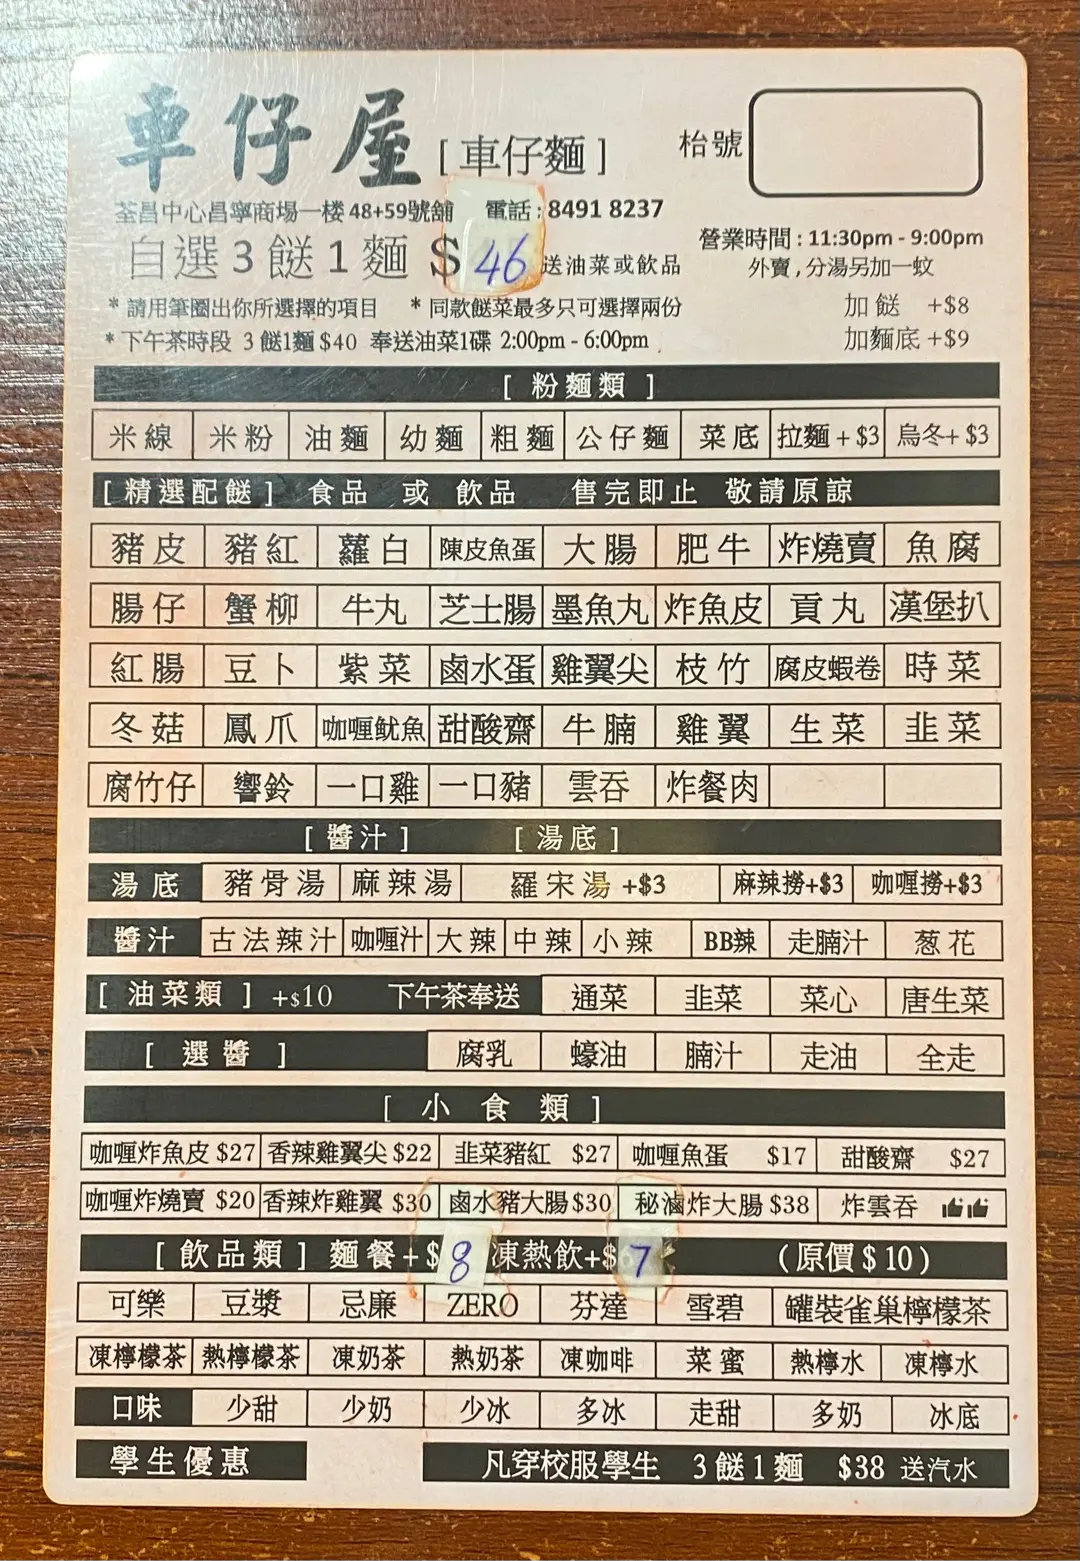 車仔屋 [ 車仔麵 ] 枱號
荃昌中心昌寧商場一楼 48+59號舖 電話 : 8491 8237
自選 3 餸 1 麵 $ 46 送油菜或飲品
營業時間 : 11:30pm - 9:00pm
外賣 , 分湯另加一蚊
* 請用筆圈出你所選擇的項目 * 同款餸菜最多只可選擇兩份
加 餸 +$8
* 下午茶時段 3 餸1麵 $40 奉送油菜1碟 2:00pm - 6:00pm
加麵底 +$9
[ 粉麵類 ]
米線 米粉 油麵 幼麵 粗麵 公仔麵 菜底 拉麵 + $3 烏冬+ $3
[ 精選配餸 ] 食品 或 飲品 售完即止 敬請原諒
豬皮 豬紅 蘿白 陳皮魚蛋 大腸 肥牛 炸燒賣 魚腐
腸仔 蟹柳 牛丸 芝士腸 墨魚丸 炸魚皮 貢丸 漢堡扒
紅腸 豆卜 紫菜 鹵水蛋 雞翼尖 枝竹 腐皮蝦卷 時菜
冬菇 鳳爪 咖喱魷魚 甜酸齋 牛腩 雞翼 生菜 韭菜
腐竹仔 響鈴 一口雞 一口豬 雲吞 炸餐肉
[ 醬汁 ] [ 湯底 ]
湯底 豬骨湯 麻辣湯 羅宋湯 +$3 麻辣撈+$3 咖喱撈+$3
醬汁 古法辣汁 咖喱汁 大辣 中辣 小辣 BB辣 走腩汁 葱花
[ 油菜類 ] +$10 下午茶奉送 通菜 韭菜 菜心 唐生菜
[ 選醬 ] 腐乳 蠔油 腩汁 走油 全走
[ 小食類 ]
咖喱炸魚皮 $27 香辣雞翼尖 $22 韭菜豬紅 $27 咖喱魚蛋 $17 甜酸齋 $27
咖喱炸燒賣 $20 香辣炸雞翼 $30 鹵水豬大腸 $30 秘滷炸大腸 $38 炸雲吞
[ 飲品類 ] 麵餐+$ 8 凍熱飲+$ 7 (原價 $ 10 )
可樂 豆漿 忌廉 ZERO 芬達 雪碧 罐裝雀巢檸檬茶
凍檸檬茶 熱檸檬茶 凍奶茶 熱奶茶 凍咖啡 菜蜜 熱檸水 凍檸水
口味 少甜 少奶 少冰 多冰 走甜 多奶 冰底
學生優惠 凡穿校服學生 3 餸 1 麵 $38 送汽水